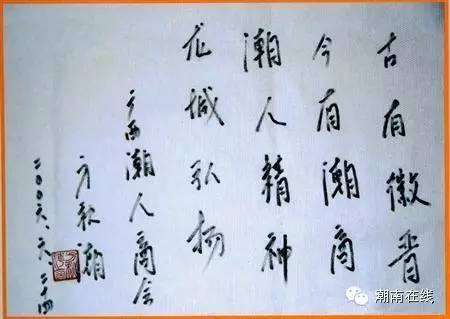 古有徽晋
今有潮商
潮人精神
龙城弘扬
广西潮人商会
方潮
二00六、六、二十四
潮南在线